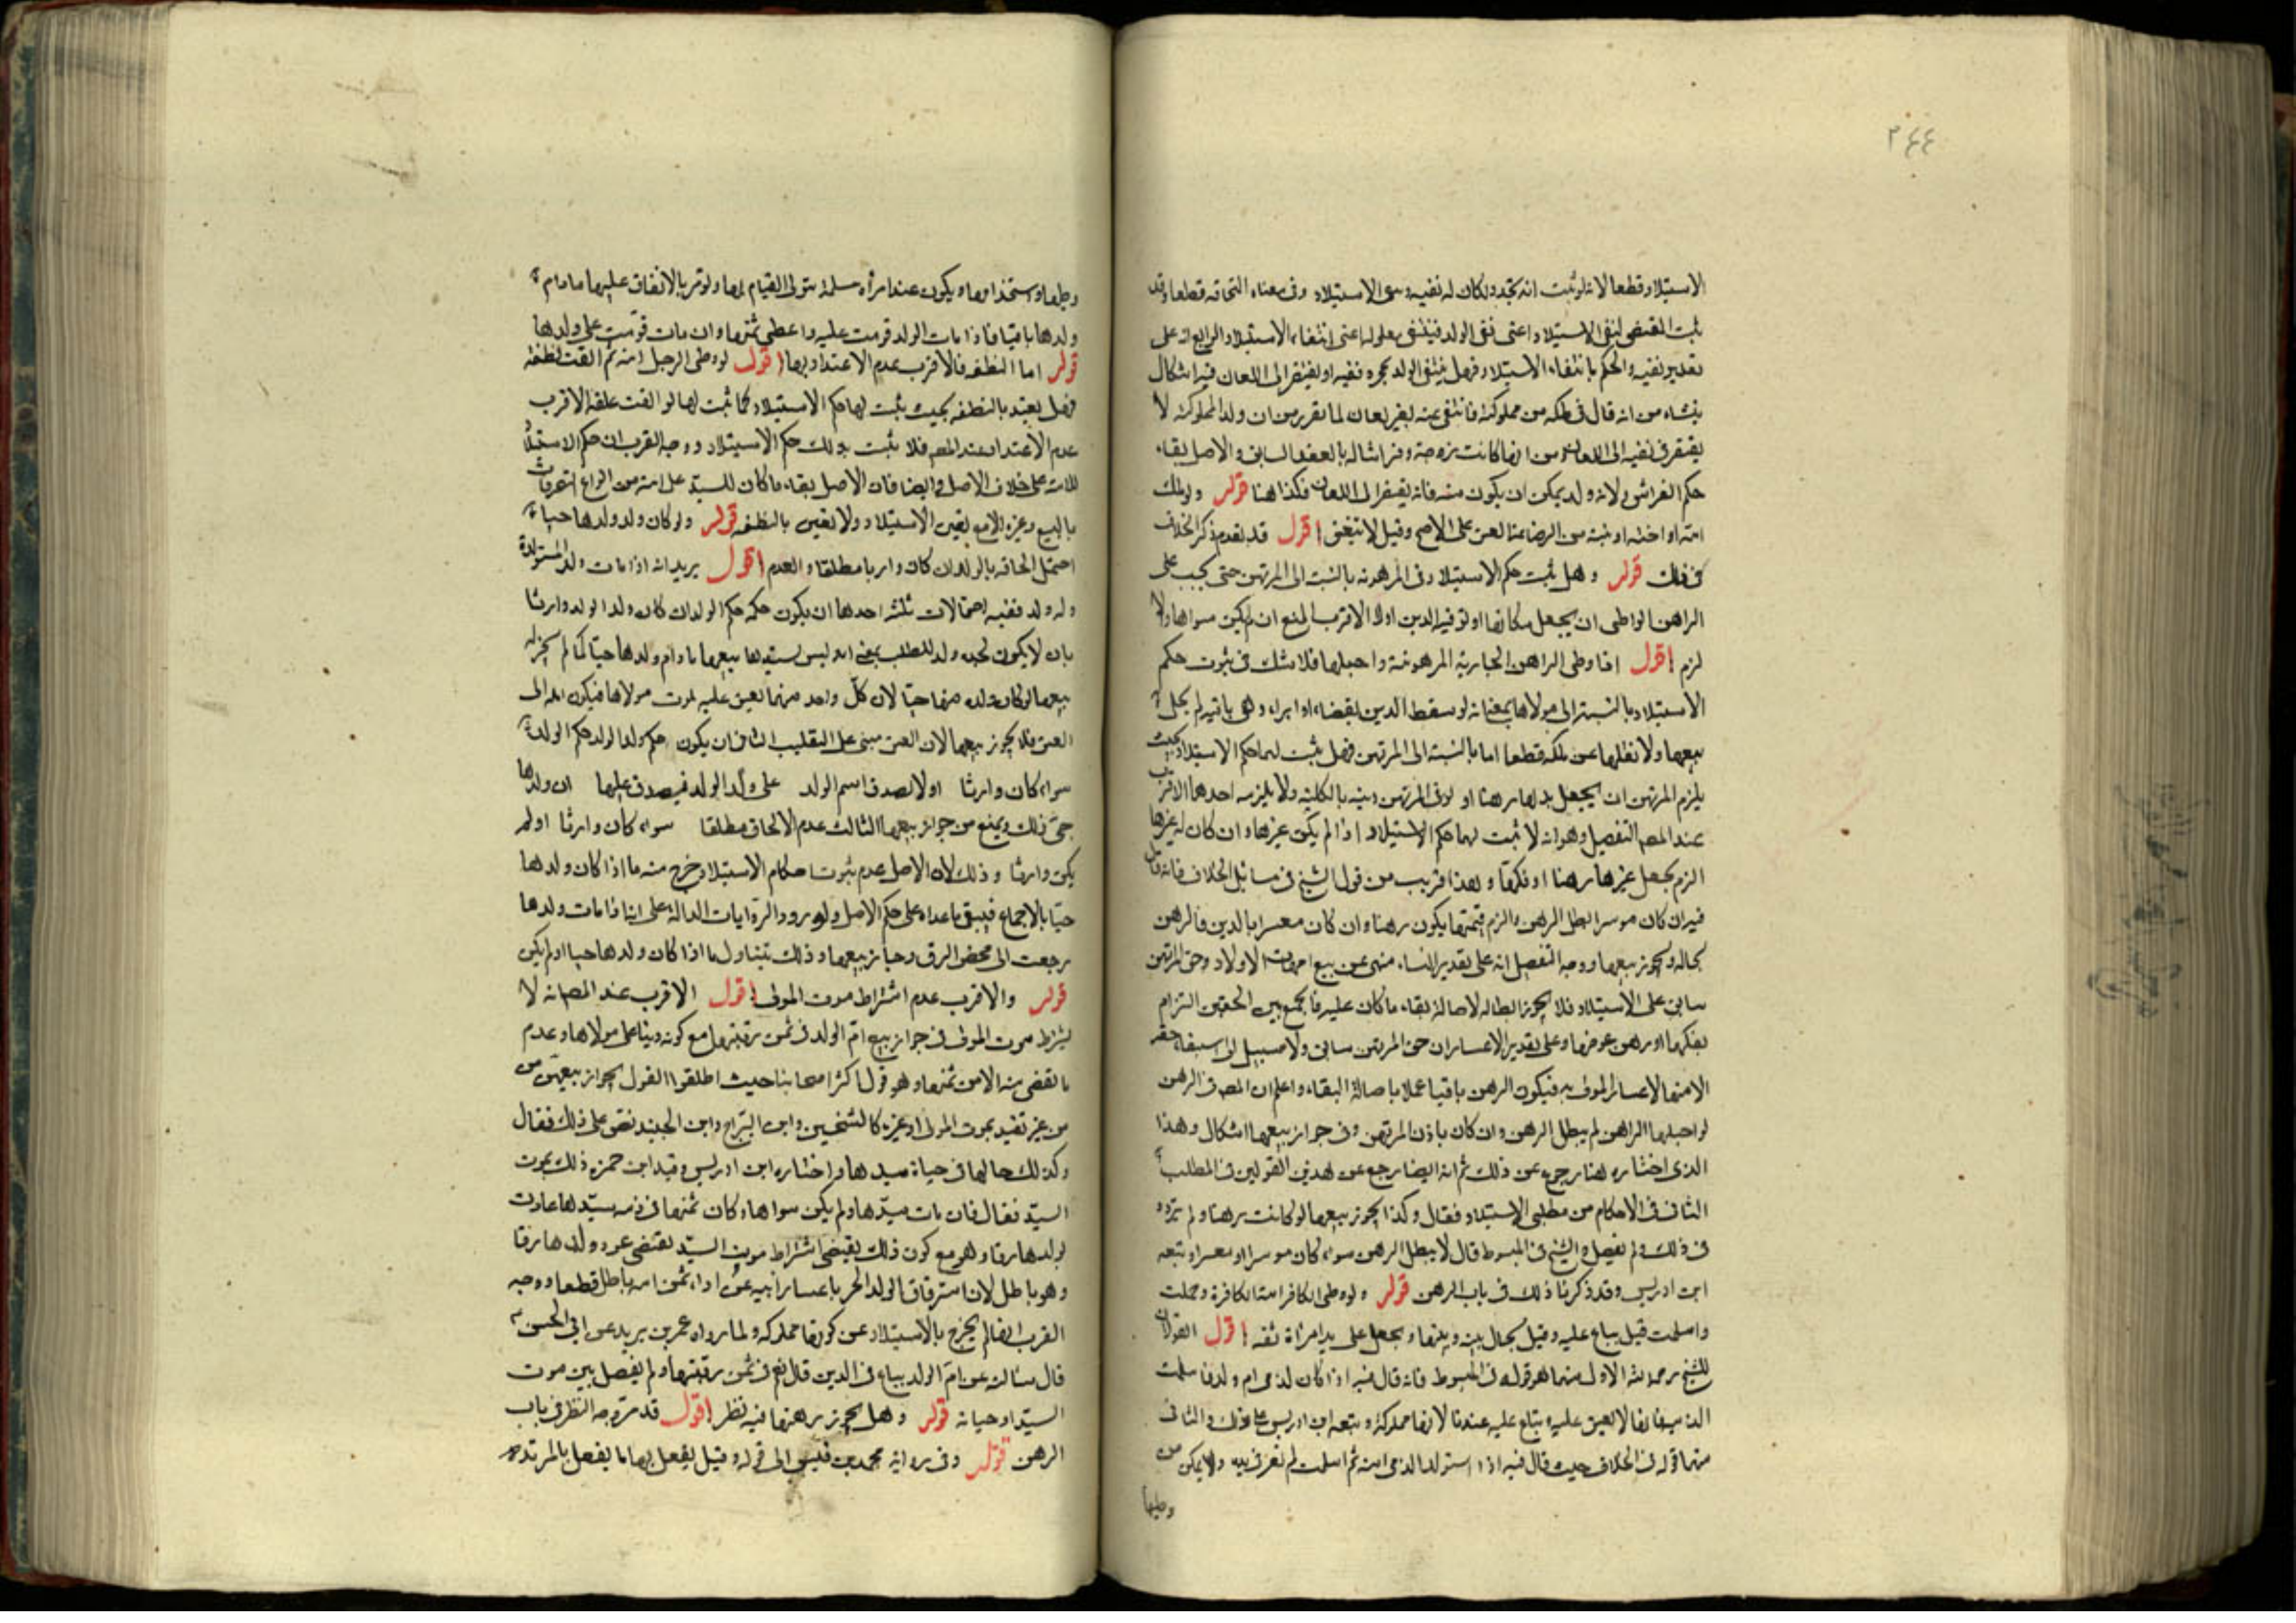 ٢٤٤
الاستيلاد قطعا لانه لو ثبت انه تجدد لكان له نفيه وبقى الاستيلاد وفى معناه التحاقه قطعا وقد
ثبت المقتضى لنفى الاستيلاد اعنى نفى الولد فينتفى معلولها اعنى انتفاء الاستيلاد الرابع انه على
تقدير نفيه والحكم بانتفاء الاستيلاد فهل ينتفى الولد بمجرد نفيه او يفتقر الى اللعان فيه اشكال
ينشاء من انه قال فى ملكه من مملوكته فانتفى عنه بغير لعان لما تقرر من ان ولد المملوكة لا
يفتقر فى نفيه الى اللعان ومن انها كانت زوجة وفراشا له بالعقد السابق والاصل بقاء
حكم الفراش ولانه ولد يمكن ان يكون منه فانه يفتقر الى اللعان فكذا هنا قوله ولو ملك
امه او اخته او بنته من الرضاع انعتقن على الاصح وقيل لا تنعتق اقول قد تقدم ذكر الخلاف
فى ذلك قوله وهل يثبت حكم الاستيلاد فى المرهونة بالنسبة الى المرتهن حتى يجب على
الراهن الواطى ان يجعل مكانها او توفية الدين اولا الاقرب المنع ان لم يكن سواها والا
لزم اقول اذا وطى الراهن الجارية المرهونة واحبلها فلا شك فى ثبوت حكم
الاستيلاد بالنسبة الى مولاها بمعنى انه لو سقط الدين بقضاء او ابراء وهى باقية لم يحل له
بيعها ولا نقلها عن ملكه قطعا اما بالنسبة الى المرتهن فهل يثبت لها حكم الاستيلاد بحيث
يلزم المرتهن ان يجعل بدلها رهنا او لوفى المرتهن دينه بالكلية ولا يلزمه احدها الاقرب
عند المصـ التفصيل وهو انه لا يثبت لها حكم الاستيلاد اذا لم يكن غيرها وان كان له غيرها
الزم بجعل غيرها رهنا او فكها وهذا قريب من قول الشيخ فى مسائل الخلاف فانه قال
فيه ان كان موسرا بطل الرهن والزم قيمتها يكون رهنا وان كان معسرا بالدين فالرهن
بحاله ويجوز بيعها ووجه التفصيل انه على تقدير اليسار منهى عن بيع امهات الاولاد وحق المرتهن
سابق على الاستيلاد فلا يجوز ابطاله لاصالة بقاء ما كان عليه فالجمع بين الحقين التزام
بفكها او رهن عوضها وعلى تقدير الاعسار ان حق المرتهن سابق ولا سبيل الى استيفاء حقه
الا منها لاعسار الموفى به فيكون الرهن باقيا عملا باصالة البقاء واعلم ان المصـ فى الرهن
لو احبلها الراهن لم يبطل الرهن وان كان باذن المرتهن وفى جواز بيعها اشكال وهذا
الذى اختاره هنا رجوع عن ذلك ثم انه ايضا رجع عن هذين القولين فى المطلب
الثانى فى الاحكام من مطلبى الاستيلاد فقال وكذا يجوز بيعها لو كانت رهنا ولم يتردد
فى ذلك ولم يفصل والشيخ فى المبسوط قال لا يبطل الرهن سواء كان موسرا او معسرا وتبعه
ابن ادريس وقد ذكرنا ذلك فى باب الرهن قوله ولو وطى الكافر امته الكافرة وحملت
واسلمت قيل يباع عليه وقيل يحال بينه وبينها ويجعل على يد امراة ثقة اقول القولان
للشيخ رحمه الله الاول منهما هو قوله فى المبسوط فانه قال فيه اذا كان لذمى ام ولد فاسلمت
الذمية فانها لا تعتق عليه وتباع عليه عندنا لانها مملوكة وتبعه ابن ادريس على ذلك والثانى
منهما قوله فى الخلاف حيث قال فيه اذا استولد الذمى امته ثم اسلمت لم تقر فى يده ولا يمكن من
وطيها
وطيها واستخدامها ويكون عند امرأة مسلمة تتولى القيام لها ويؤمر بالانفاق عليها ما دام
ولدها باقيا فاذا مات الولد قومت عليه واعطى ثمنها وان مات قومت على ولدها
قوله اما النطفة فالاقرب عدم الاعتداد بها اقول لو وطى الرجل امته ثم القت نطفة
فهل يعتد بالنطفة بحيث يثبت لها حكم الاستيلاد كما ثبت لها لو القت علقة الاقرب
عدم الاعتداد عند المصـ فلا يثبت بذلك حكم الاستيلاد ووجه القرب ان حكم الاستيلاد
للامة على خلاف الاصل وايضا فان الاصل بقاء ما كان للسيد على امته من انواع التصرفات
بالبيع وغيره الا مع تعين الاستيلاد ولا تعين بالنطفة قوله ولو كان ولد ولدها حيا
احتمل الحاقه بالولد ان كان وارثا مطلقا والعدم اقول يريد انه اذا مات ولد المستولدة
وله ولد ففيه احتمالات ثلثة احدها ان يكون حكمه حكم الولد ان كان ولد الولد وارثا
بان لا يكون لجده ولد للصلب بمعنى انه ليس لسيدها بيعها ما دام ولدها حيا كما لم يجز له
بيعها لو كان ولده منها حيا لان كل واحد منهما تعتق عليه لموت مولاها فيكون اله الى
العتق فلا يجوز بيعها لان العتق مبنى على التغليب الثانى ان يكون حكم ولد الولد حكم الولد
سواء كان وارثا او لا لصدق اسم الولد على ولد الولد فيصدق عليها ان ولدها
حى فذلك يمنع من جواز بيعها الثالث عدم الالحاق مطلقا سواء كان وارثا او لم
يكن وارثا وذلك لان الاصل عدم ثبوت احكام الاستيلاد خرج منه ما اذا كان ولدها
حيا بالاجماع فيبقى ما عداه على حكم الاصل ولورود الروايات الدالة على انها اذا مات ولدها
رجعت الى محض الرق وجاز بيعها وذلك يتناول ما اذا كان ولد ولدها حيا او لم يكن
قوله والاقرب عدم اشتراط موت المولى اقول الاقرب عند المصـ انه لا
يشترط موت المولى فى جواز بيع ام الولد فى ثمن رقبتها مع كونه دينا على مولاها وعدم
ما يقضى منه الا من ثمنها وهو قول اكثر اصحابنا حيث اطلقوا القول بجواز بيعهن من
من غير تقييد بموت المولى او غيره كالشيخين وابن البراج وابن الجنيد نص على ذلك فقال
وكذلك حالها فى حياة سيدها واختاره ابن ادريس وقيد ابن حمزة ذلك بموت
السيد فقال فان مات سيدها ولم يكن سواها وكان ثمنها فى ذمة سيدها عادت
لولدها رقا وهو مع كون ذلك يقتضى اشتراط موت السيد يقتضى عود ولدها رقا
وهو باطل لان استرقاق الولد الحر باعسار ابيه عن اداء ثمن امه باطل قطعا ووجه
القرب انها لم يخرج بالاستيلاد عن كونها مملوكة ولما رواه عمر بن يزيد عن ابى الحسن
قال سألته عن ام الولد يباع فى الدين قال نعم فى ثمن رقبتها ولم يفصل بين موت
السيد او حياته قوله وهل يجوز رهنها فيه نظر اقول قد مر وجه النظر فى باب
الرهن قوله وفى رواية محمد بن قيس الى قوله وقيل يفعل بها ما يفعل بالمرتدة